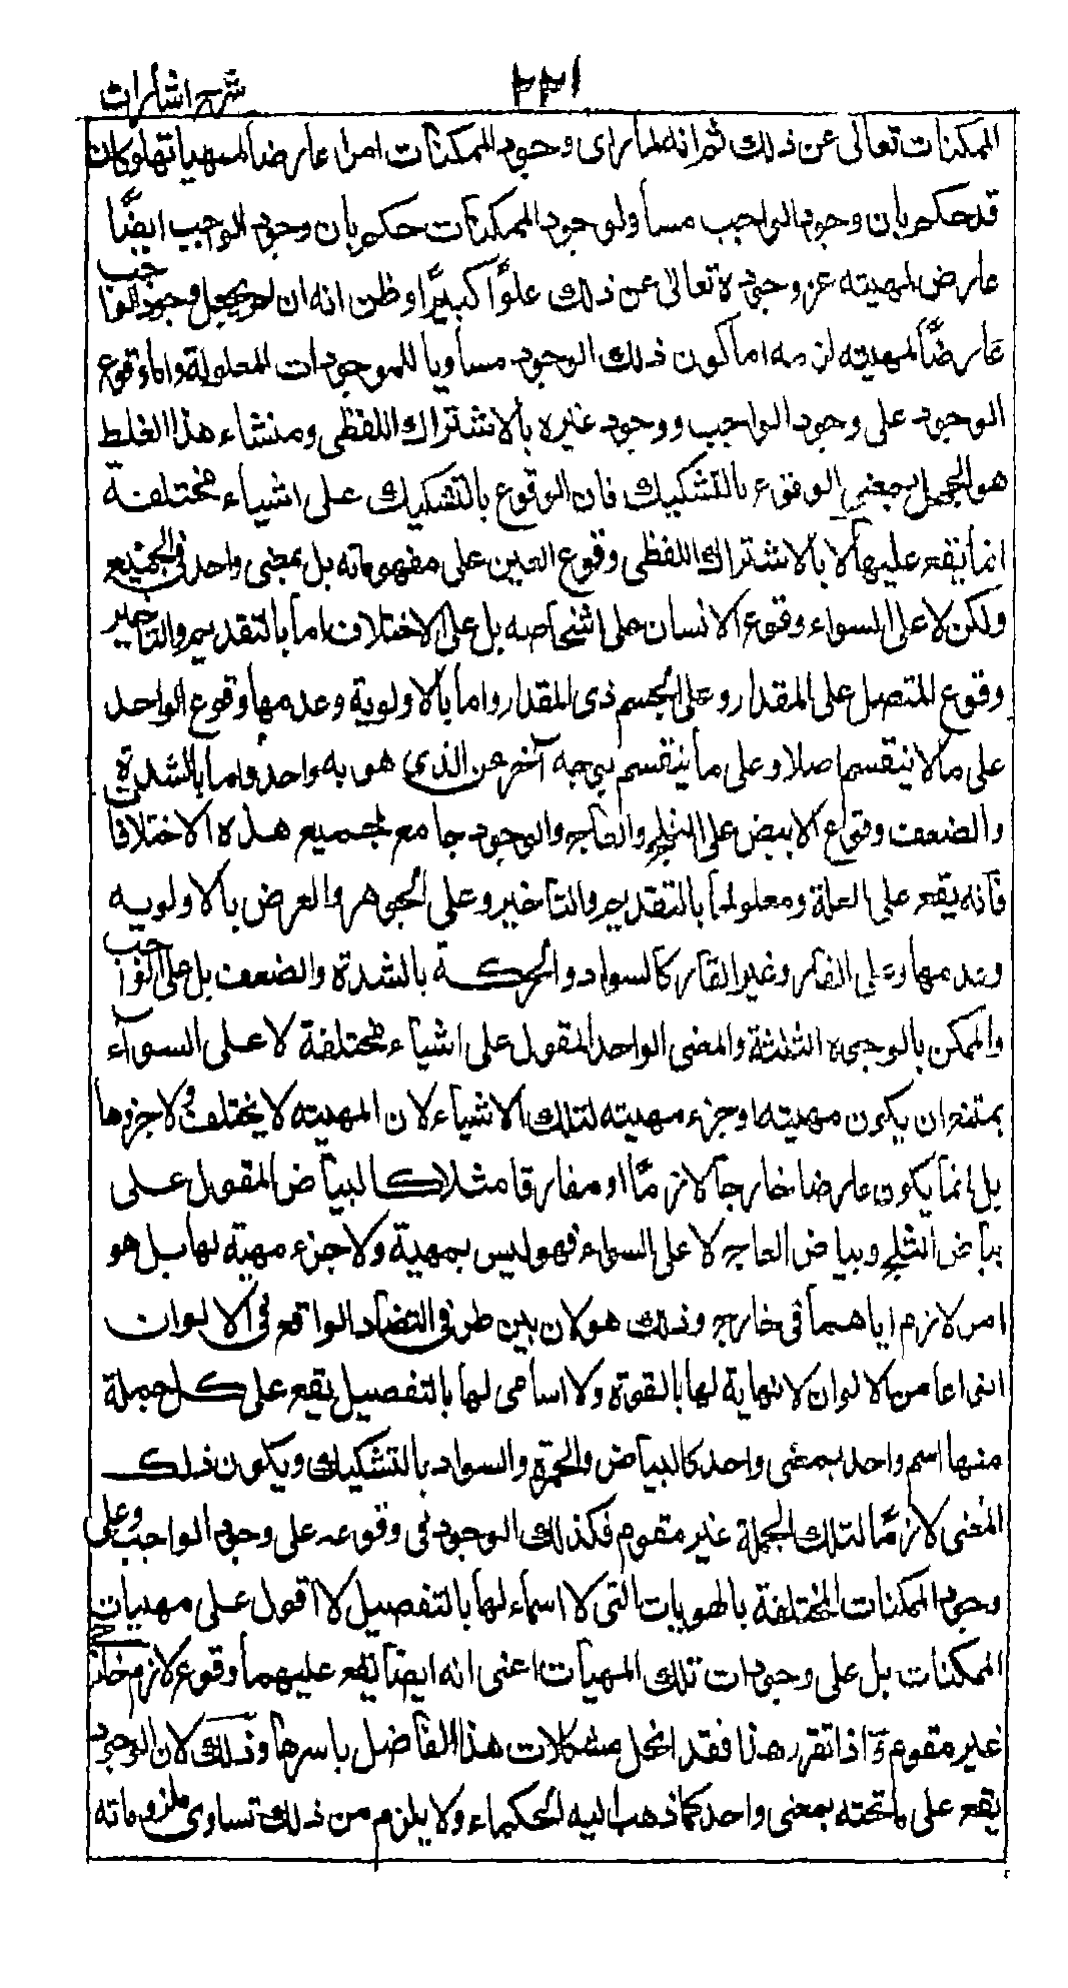 شرح اشارات
٢٢١
الممكنات تعالى عن ذلك ثم انه لما راى وجود الممكنات امرا عارضا لمهياتها وكان
قد حكم بان وجود الواجب مساو لوجود الممكنات حكم بان وجود الواجب ايضا
عارض لمهيته عن وجوده تعالى عن ذلك علوا كبيرا وظن انه ان لم يجعل وجود الواجب
عارضا لمهيته لزمه اما كون ذلك الوجود مساويا للموجودات المعلولة واما وقوع
الوجود على وجود الواجب ووجود غيره بالاشتراك اللفظى ومنشاء هذا الغلط
هو الجهل بمعنى الوقوع بالتشكيك فان الوقوع بالتشكيك على اشياء مختلفة
انما يقع عليها لا بالاشتراك اللفظى وقوع العين على مفهوماته بل بمعنى واحد فى الجميع
ولكن لا على السواء وقوع الانسان على اشخاصه بل على الاختلاف اما بالتقديم والتاخير
وقوع المتصل على المقدار وعلى الجسم ذى المقدار واما بالاولوية وعدمها وقوع الواحد
على ما لا ينقسم اصلا وعلى ما ينقسم بوجه آخر عن الذى هو به واحد واما بالشدة
والضعف وقوع الابيض على الثلج والعاج والوجود جامع لجميع هذه الاختلافات
فانه يقع على العلة ومعلولها بالتقديم والتاخير وعلى الجوهر والعرض بالاولويه
وعدمها وعلى القار وغير القار كالسواد والحركة بالشدة والضعف بل على الواجب
والممكن بالوجوه الثلثة والمعنى الواحد المقول على اشياء مختلفة لا على السوآء
يمتنع ان يكون مهيته او جزء مهيته لتلك الاشياء لان المهيته لا يختلف ولا جزوها
بل انما يكون عارضا خارجا لازما او مفارقا مثلا كالبياض المقول على
بياض الثلج وبياض العاج لا على السواء فهو ليس بمهية ولا جزء مهية لها بل هو
امر لازم اياهما فى خارج وذلك هو لان بين طرفى التضاد الواقع فى الالوان
انواعا من الالوان لا نهاية لها بالقوة ولا اسامى لها بالتفصيل يقع على كل جملة
منها اسم واحد بمعنى واحد كالبياض والحمرة والسواد بالتشكيك ويكون ذلك
المعنى لازما لتلك الجملة غير مقوم فكذلك الوجود فى وقوعه على وجود الواجب وعلى
وجود الممكنات المختلفة بالهويات التى لا اسماء لها بالتفصيل لا اقول على مهيات
الممكنات بل على وجودات تلك المهيات اعنى انه ايضا يقع عليهما وقوع لازم خارج
غير مقوم واذا تقرر هذا فقد انحل مشكلات هذا الفاضل باسرها وذلك لان الوجود
يقع على ما تحته بمعنى واحد كما ذهب اليه الحكماء ولا يلزم من ذلك تساوى ملزوماته